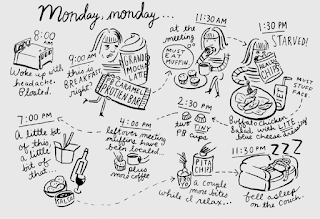 Monday, monday...
8:00 AM
Woke up with
headache.
Bloated.
9:00 AM
this is
BREAKFAST,
right?
GRANDE
MOCHA
LATTE
CARAMEL
PROTIEN BAR
11:30 AM
at the
meeting
MUST
EAT
MUFFIN.
1:30 PM
STARVED!
CHIPS
MUST
STUFF
FACE
Buffalo chicken
Salad with LITE
blue cheese dressing
2:30 PM
two TINY
PB cups
4:00 PM
leftover meeting
muffins have
been located...
plus
more coffee
7:00 PM
A little bit
of this,
a little
bit of
that...
SALSA
PITA
CHIPS
a couple
more bites
while I relax...
11:30 PM
ZZZ
fell asleep
on the couch.